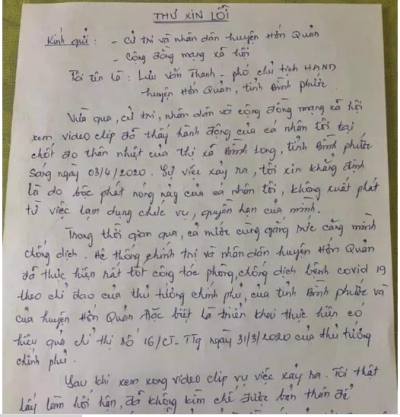 THƯ XIN LỖI
Kính gửi: - Cử tri và nhân dân huyện Hớn Quản
- Cộng đồng mạng xã hội
Tôi tên là: Lưu Văn Thanh - phó chủ tịch HĐND
huyện Hớn Quản, tỉnh Bình phước.
Vừa qua, cử tri, nhân dân và cộng đồng mạng xã hội
xem video clip đã thấy hành động của cá nhân tôi tại
chốt đo thân nhiệt của thị xã Bình Long, tỉnh Bình phước
sáng ngày 03/4/2020. Sự việc xảy ra, tôi xin khẳng định
là do bộc phát nóng nảy của cá nhân tôi, không xuất phát
từ việc lạm dụng chức vụ, quyền hạn của mình.
Trong thời gian qua, cả nước cùng gắng sức căng mình
chống dịch. Hệ thống chính trị và nhân dân huyện Hớn Quản
đã thực hiện rất tốt công tác phòng, chống dịch bệnh covid 19
theo chỉ đạo của thủ tướng chính phủ, của tỉnh Bình phước và
của huyện Hớn Quản đặc biệt là triển khai thực hiện có
hiệu quả chỉ thị số 16/CT-TTg ngày 31/3/2020 của thủ tướng
chính phủ.
Sau khi xem xong video clip vụ việc xảy ra. Tôi thật
lấy làm hối hận, đã không kìm chế được bản thân để